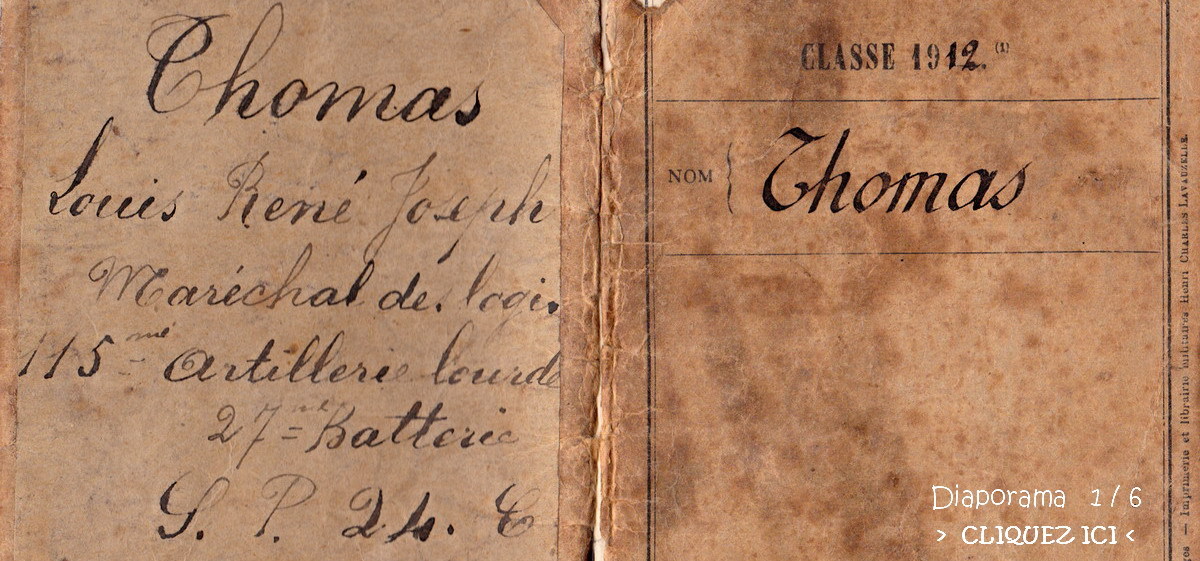 Thomas
Louis René Joseph
Maréchal des logis
115me Artillerie lourde
27me Batterie
S. P. 24. C
CLASSE 1912. (1)
NOM { Thomas
Imprimerie et librairie militaires Henri CHARLES LAVAUZELLE.
Diaporama 1 / 6
> CLIQUEZ ICI <